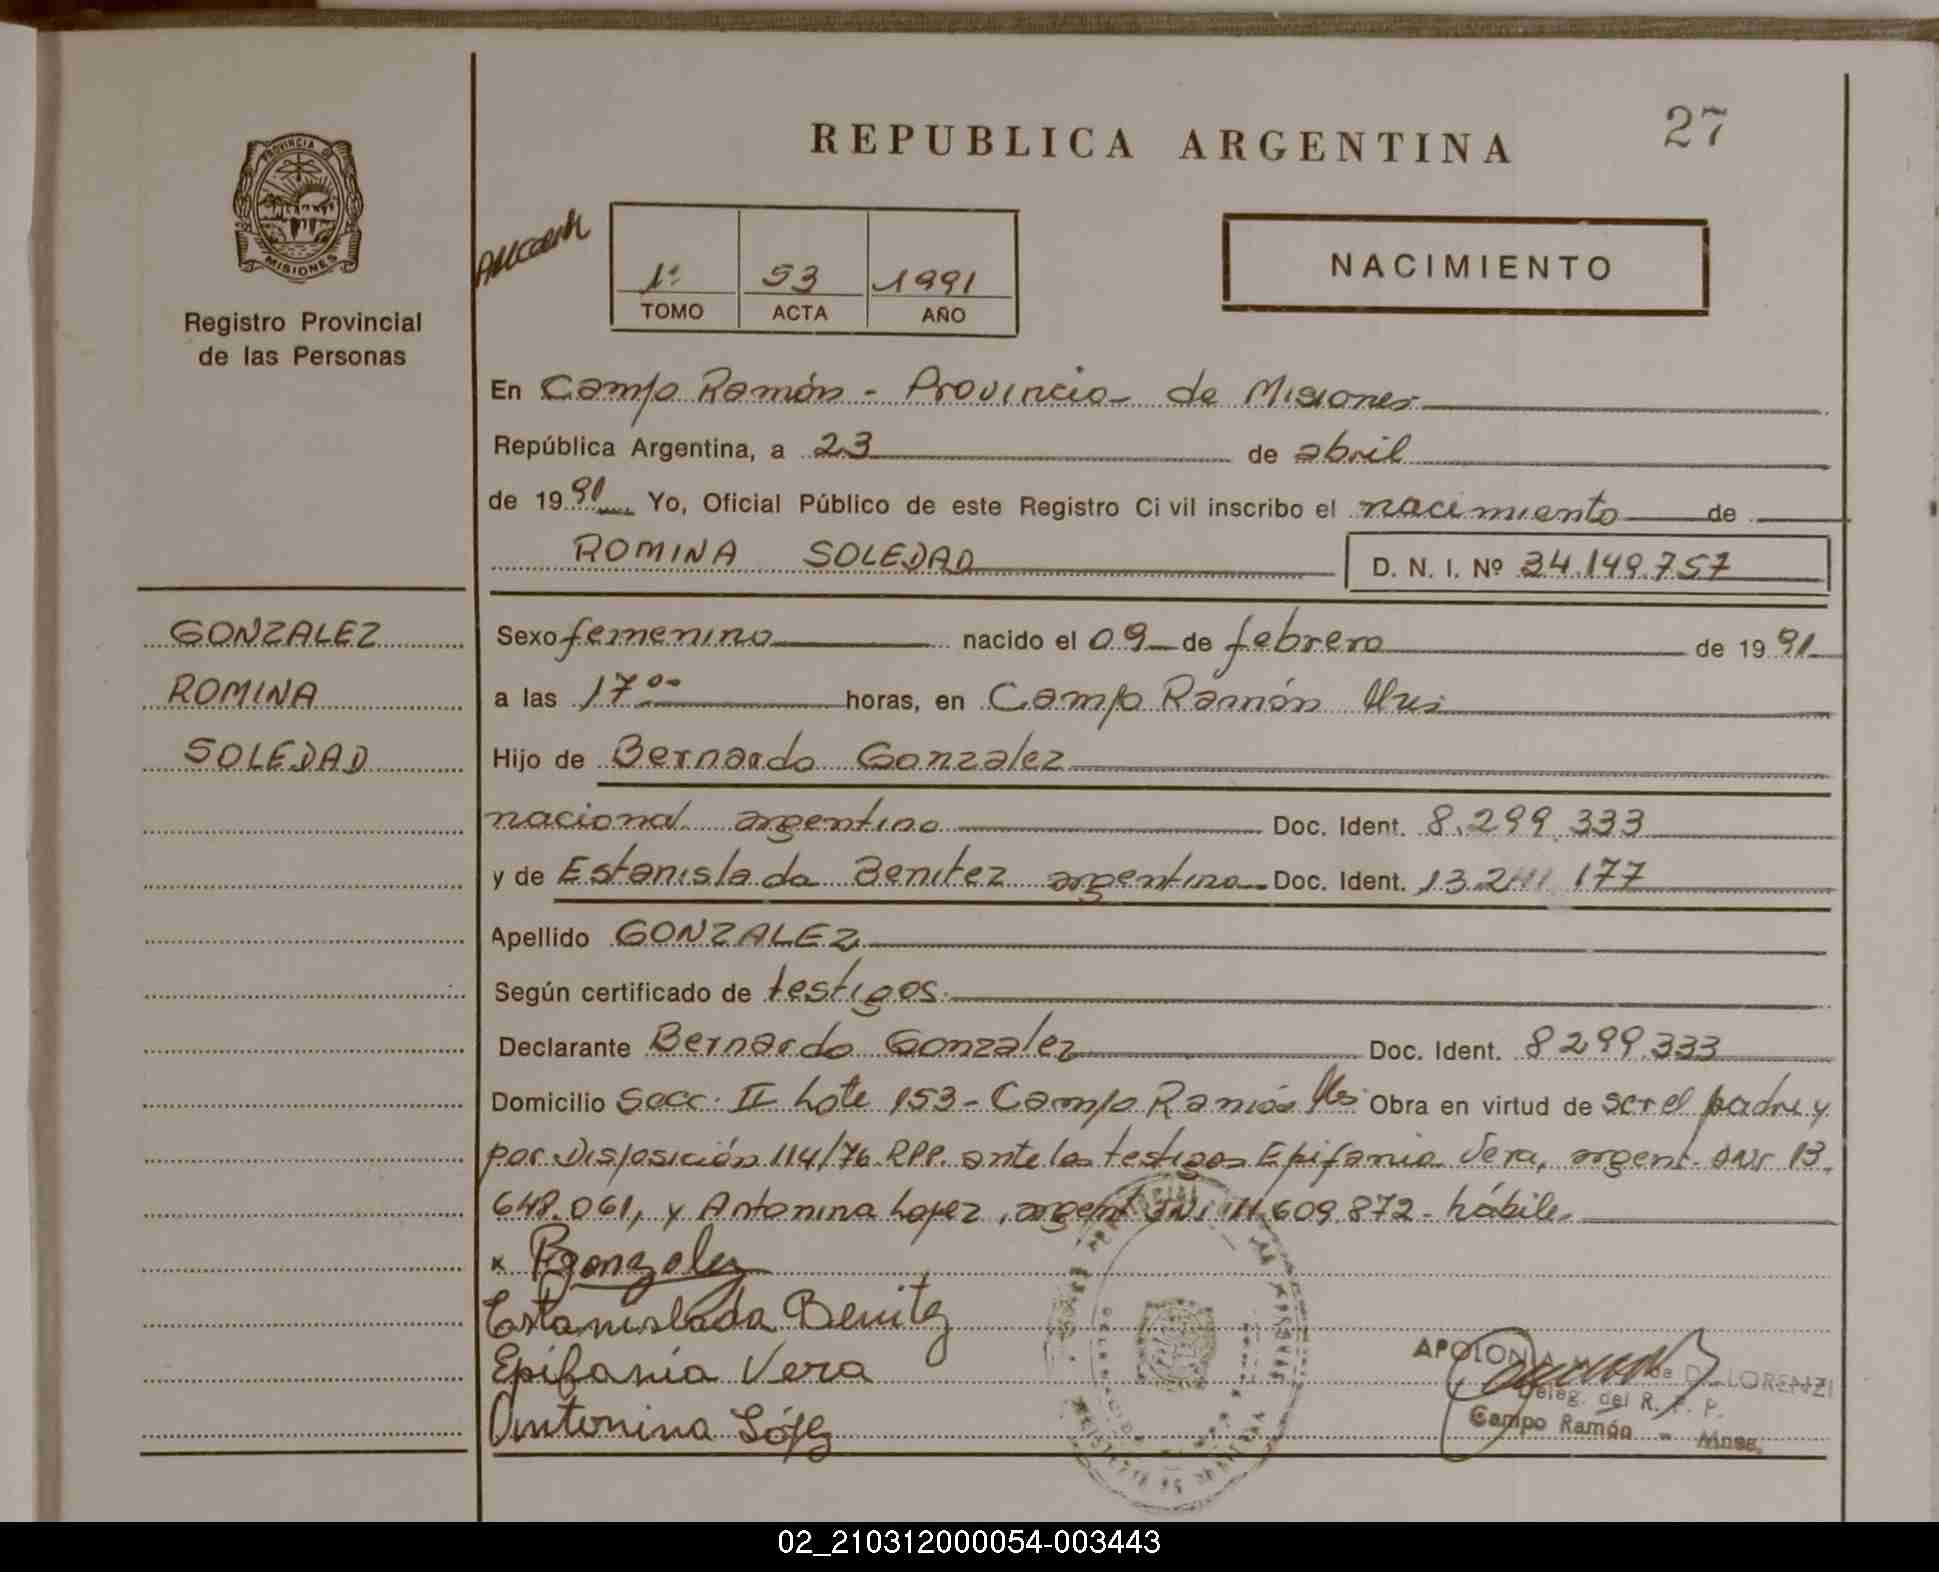 27
REPUBLICA ARGENTINA
PROVINCIA DE
MISIONES
Registro Provincial
de las Personas
1º 53 1991
TOMO ACTA AÑO
NACIMIENTO
En Campo Ramón - Provincia de Misiones
República Argentina, a 23 de abril
de 1991 Yo, Oficial Público de este Registro Civil inscribo el nacimiento de
ROMINA SOLEDAD D. N. I. Nº 34.149.757
GONZALEZ
ROMINA
SOLEDAD
Sexo femenino nacido el 09 de febrero de 1991
a las 17 00 horas, en Campo Ramón Mnes
Hijo de Bernardo Gonzalez
nacional. argentino Doc. Ident. 8.299.333
y de Estanislada Benitez argentina Doc. Ident. 13.241.177
Apellido GONZALEZ
Según certificado de testigos
Declarante Bernardo Gonzalez Doc. Ident. 8299.333
Domicilio Secc. II Lote 153 - Campo Ramón Mnes Obra en virtud de ser el padre y
por Disposición 114/76 RPP. ante los testigos Epifania Vera, argent. DNI 13.
648.061, y Antonina Lopez, argent DNI 11.609.872 - hábiles
x BGonzalez
Estanislada Benitez
Epifania Vera
Antonina López
APOLONIA M. de DI LORENZI
Deleg. del R. P. P.
Campo Ramón - Mnes.
02_210312000054-003443